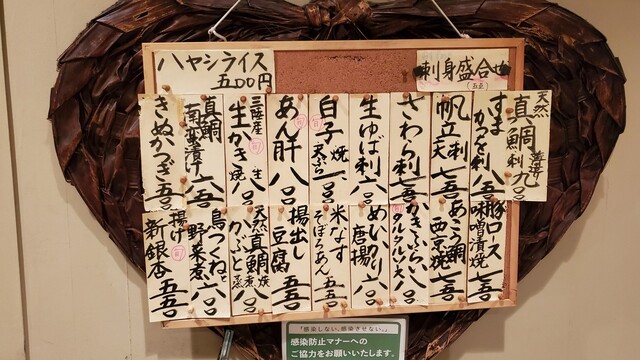 ハヤシライス
五〇〇円
刺身盛合せ
(五点)
天然
真鯛刺
薄造り
九〇〇
すま
かつを刺
八五〇
帆立刺
天
七五〇
さわら刺
七五〇
生ゆば刺
六〇〇
白子
焼
天ぷら
旬
あん肝
旬
八〇〇
三陸産
生かき
旬
生
焼
八〇〇
真鯛
南蛮漬け
八五〇
きぬかつぎ
五五〇
豚ロース
味噌漬焼
七五〇
あこう鯛
西京焼
七五〇
かきふらい
タルタルソース
八〇〇
めひかり
唐揚
六〇〇
米なす
そぼろあん
五五〇
揚出し
豆腐
五五〇
天然真鯛
かぶと
焼
煮
蒸
八〇〇
鳥つくねと
野菜煮
六〇〇
揚げ
新銀杏
旬
五五〇
「感染しない。感染させない。」
感染防止マナーへの
ご協力をお願いいたします。